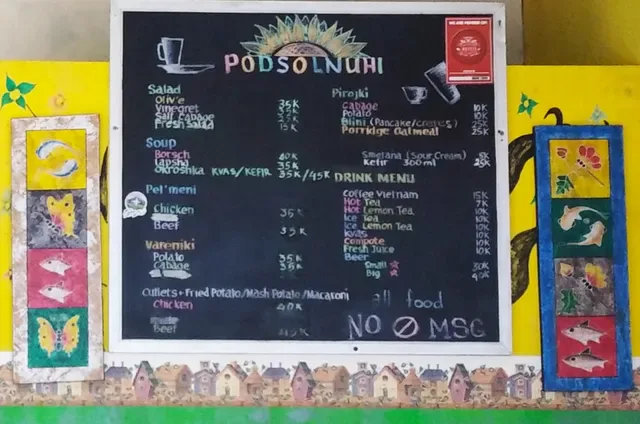 PODSOLNUHI
Salad
Olive 35K
Vinegret
Salt Cabage
Fresh Salad 15K
Soup
Borsch 40K
Lapsha 35K
Okroshka KVAS/KEFIR 35K/45K
Pel'meni
Chicken 35K
Beef 35K
Vareniki
Potato 35K
Cabage 35K
Cutlets + Fried Potato/Mash Potato/Macaroni
Chicken 40K
Beef 45K
Pirojki
Cabage 10K
Potato 10K
Blini (Pancake/Crepes) 25K
Porridge Oatmeal 25K
Smetana (Sour Cream) 5K
Kefir 300ml 25K
DRINK MENU
Coffee Vietnam 15K
Hot Tea 7K
Hot Lemon Tea 10K
Ice Tea 10K
Ice Lemon Tea 10K
Kvas 10K
Compote 10K
Fresh Juice 10K
Beer
Small 30K
Big 40K
all food
NO MSG